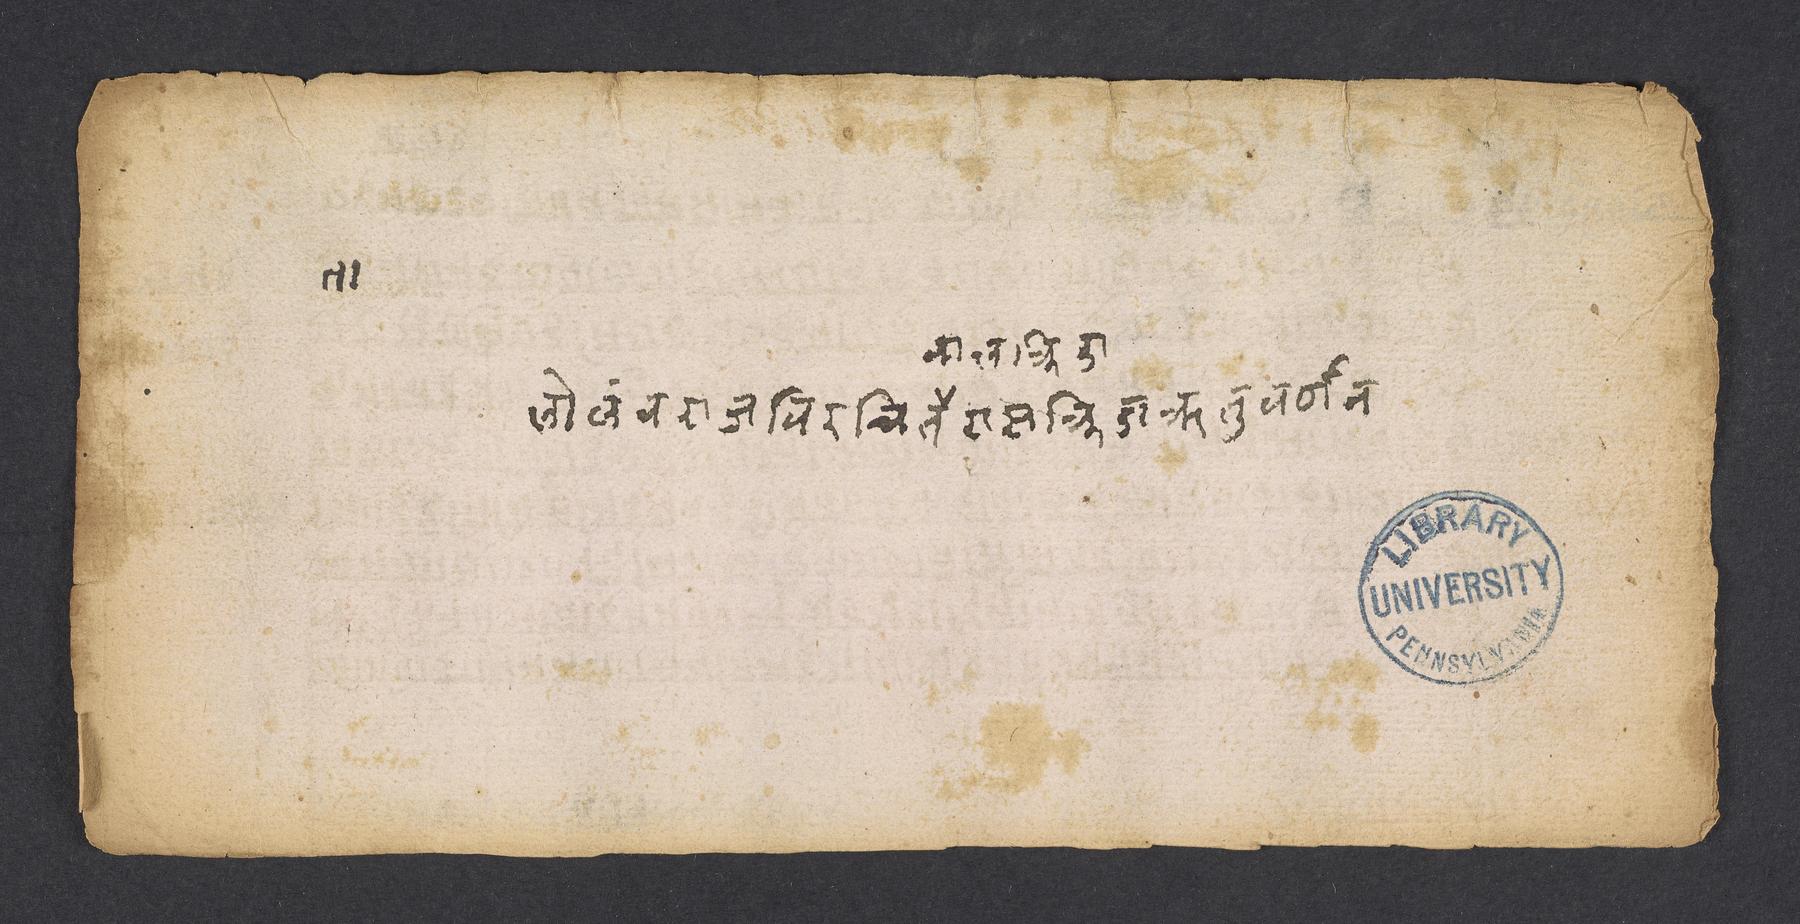 ता
जलक्रिडा
लोलंवराजविरचितेंरासक्रिडाऋतुवर्णन
LIBRARY
UNIVERSITY
PENNSYLVANIA